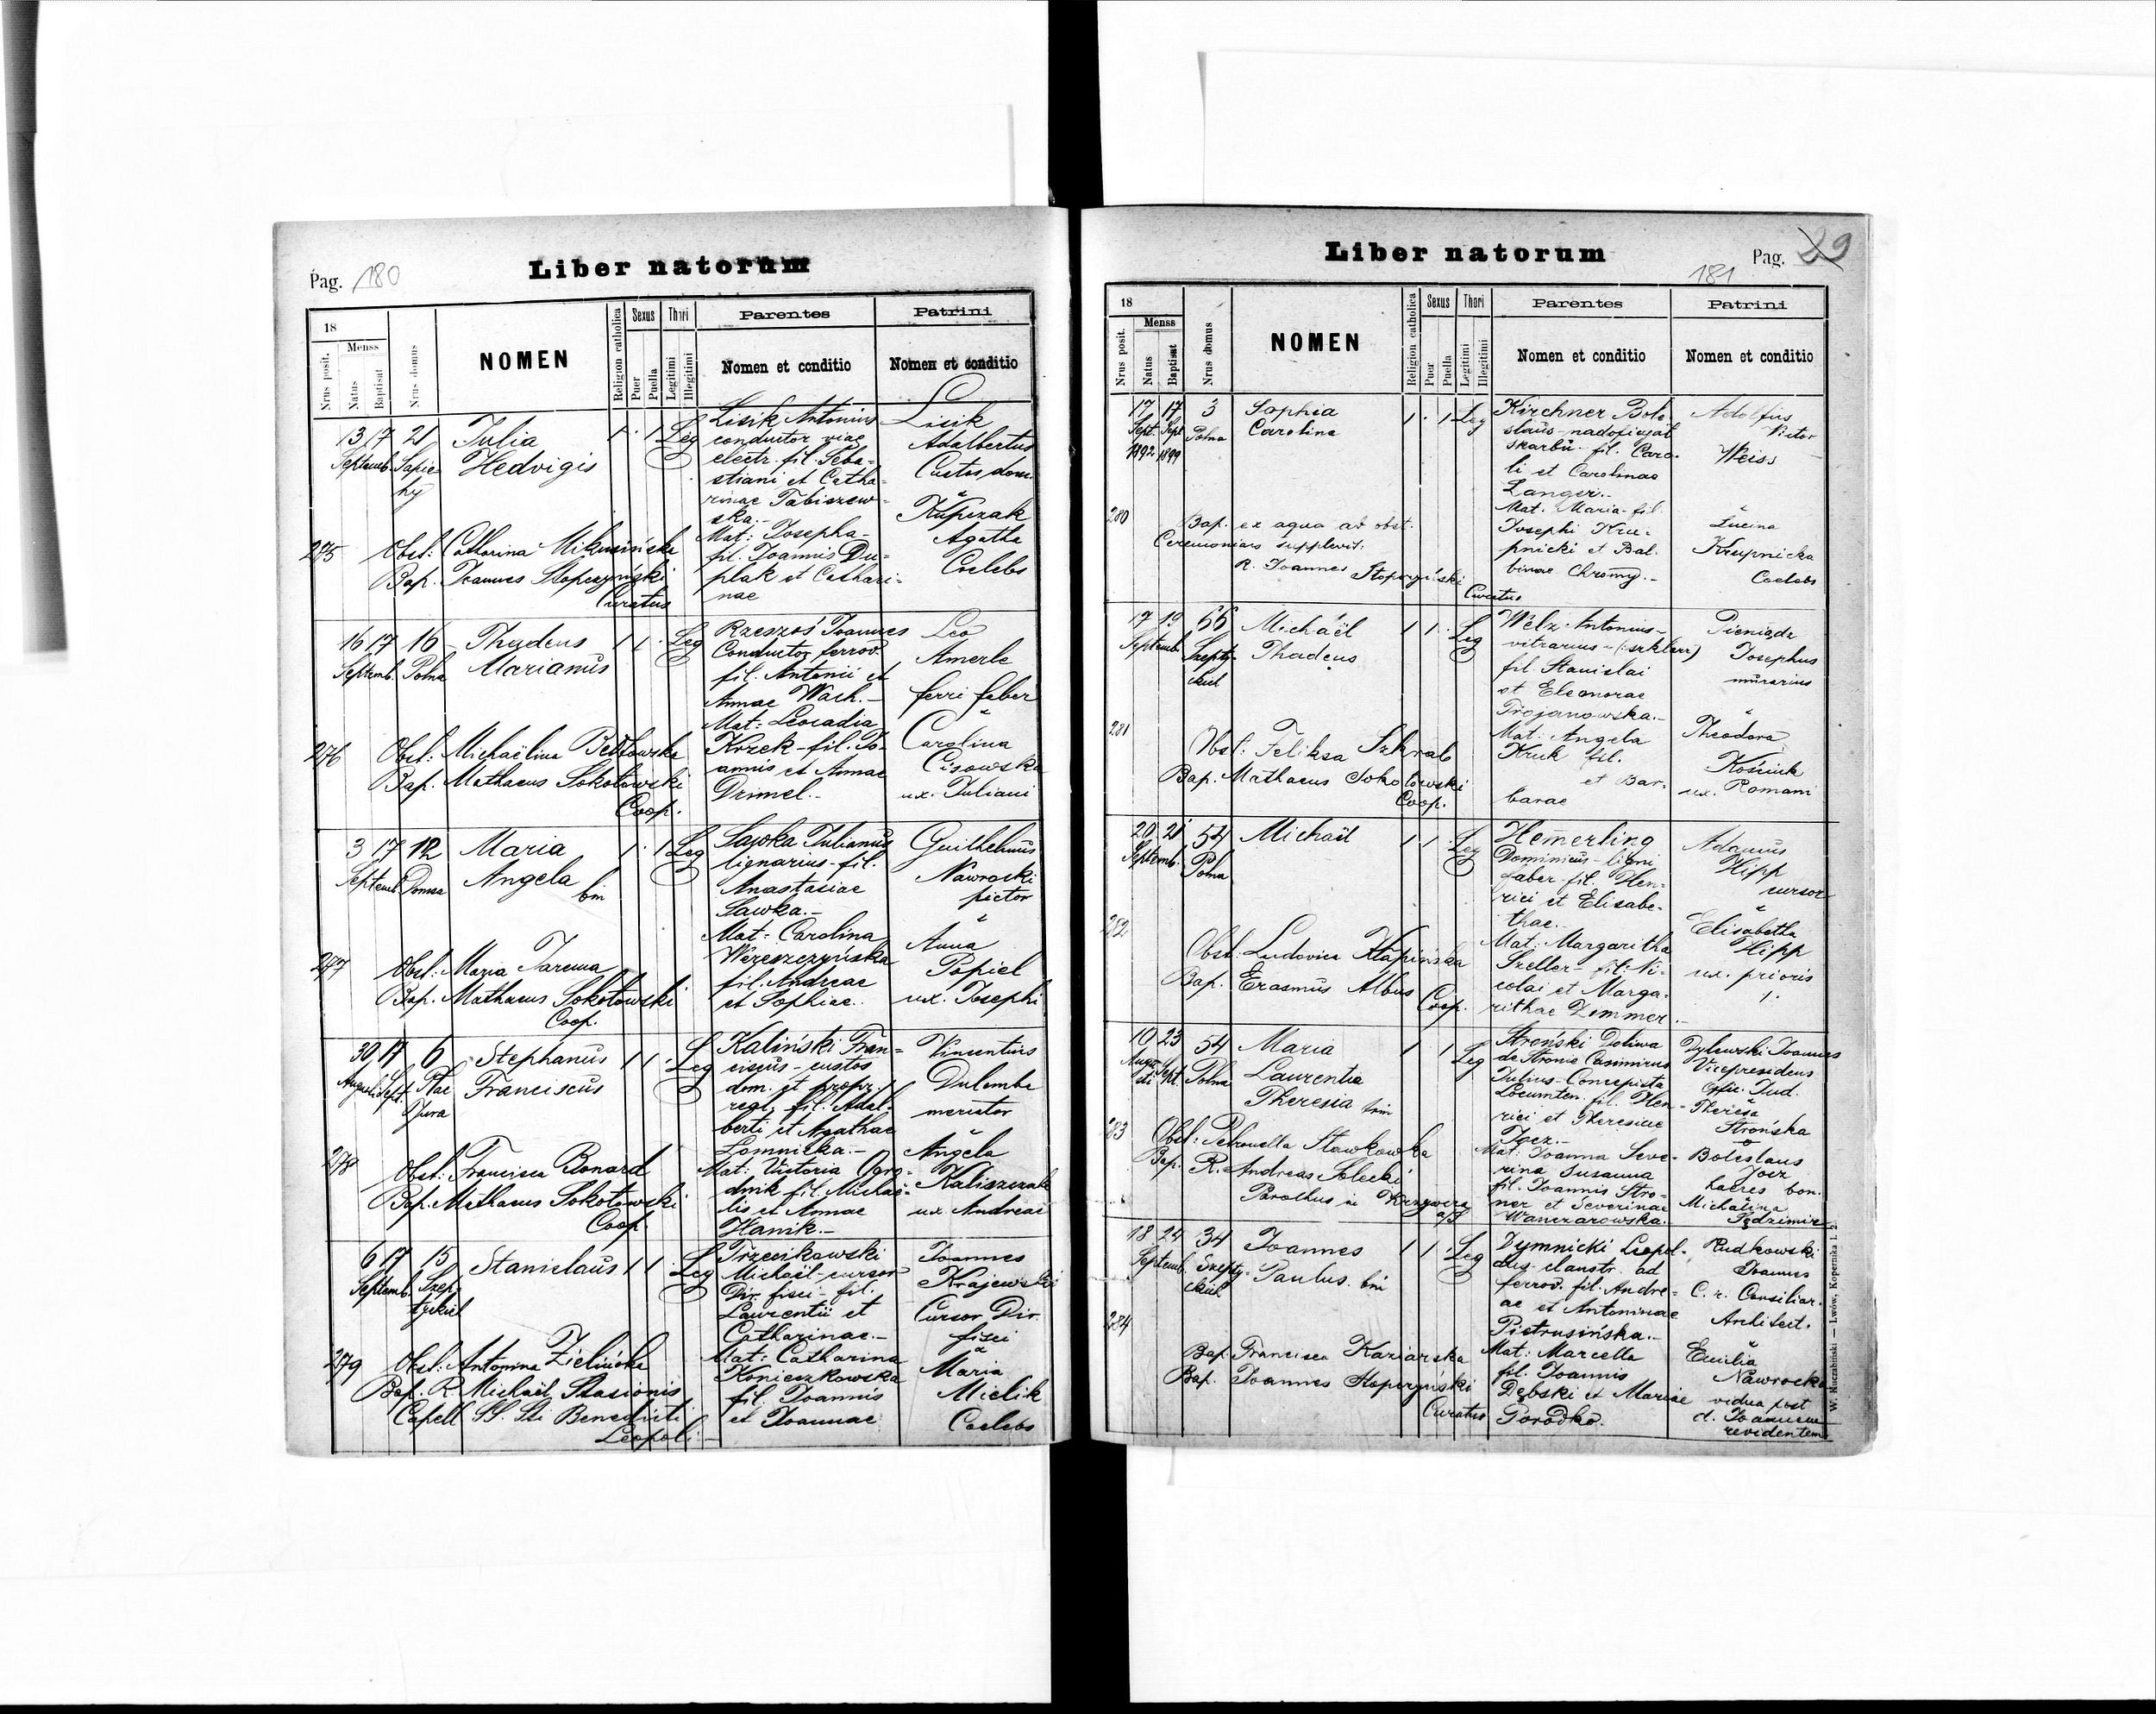 Liber natorum
Pag. 180
18
Menss
Nrus posit.
Natus
Baptisat
Nrus domus
NOMEN
Religion catholica
Sexus
Puer
Puella
Thori
Legitimi
Illegitimi
Parentes
Nomen et conditio
Patrini
Nomen et conditio
13 17 21 Julia 1 · 1 Leg
Septemb. Sapie-
hy
Hedvigis
Lisik Antonius
conductor viae
electr. fil. Seba-
stiani et Catha-
rinae Tabiszew-
ska.-
Mat: Josepha-
fil. Joannis Du-
plak et Cathari-
nae
Lisik
Adalbertus
Custos dom.
Kupczak
Agatha
Coelebs
275 Obst: Catharina Mikusińska
Bap. Joannes Stopczyński
Curatus
16 17 16 Thadeus 1 1 · Leg
Septemb. Polna Marianus
Rzeszoś Joannes
Conductor ferrov.
fil. Antonii et
Annae Wach.-
Mat: Leocadia
Krzek-fil. Jo-
annis et Annae
Drimel.-
Leo
Amerle
ferri faber
Carolina
Cisowska
ux. Juliani
276 Obst: Michaëlina Bedłowska
Bap. Mathaeus Sokołowski
Coop.
3 17 12 Maria 1 · 1 Leg
Septemb. Domsa Angela bin
Sawka Julianus
lignarius-fil.
Anastasiae
Sawka.-
Mat: Carolina
Wereszczyńska
fil. Andreae
et Sophiae.
Guilhelmus
Nawrocki
pictor
Anna
Popiel
ux. Josephi
277 Obst: Maria Jarema
Bap. Mathaeus Sokołowski
Coop.
30 17 6 Stephanus 1 1 · Leg
Augusti Sept. Plac
Jura
Franciscus
Kaliński Fran-
ciscus-custos
dom. et propr.
regl, fil. Adal-
berti et Agathae
Lomnicka.-
Mat: Victoria Ogro-
dnik fil. Michaë-
lis et Annae
Hanik.-
Vincentius
Dulemba
mercator
Angela
Kaliszczak
ux Andreae
278 Obst: Francisca Bonard
Bap. Mathaeus Sokołowski
Coop.
6 17 15 Stanislaus 1 1 · Leg
Septemb. Szep-
tyckich
Trzecikowski
Michaël-cursor
Dir. fisci-fil.
Laurentii et
Catharinae.-
Mat: Catharina
Konieszkowska
fil. Joannis
et Joannae
Joannes
Krajewski
Cursor Dir.
fisci
Maria
Mielik
Coelebs
279 Obst: Antonina Zielińska
Bap. R. Michaël Stasionis
Capell SS. Sti Benedicti
Leopoli.-
Liber natorum
Pag. 29
181
18
Menss
Nrus posit.
Natus
Baptisat
Nrus domus
NOMEN
Religion catholica
Sexus
Puer
Puella
Thori
Legitimi
Illegitimi
Parentes
Nomen et conditio
Patrini
Nomen et conditio
17 17 3 Sophia 1 · 1 Leg
Sept. Sept. Polna Carolina
1892 1899
Kirchner Bole-
slaus-nadoficyał
skarbu-fil. Caro-
li et Carolinae
Langer.-
Mat. Maria-fil.
Josephi Kru-
pnicki et Bal-
binae Chromy.-
Adolfus
Victor
Weiss
Lucina
Krupnicka
Coelebs
280 Bap. ex aqua ab obst.
Ceremonias supplevit:
R. Joannes Stopczyński
Curatus
17 19 66 Michaël 1 1 · Leg
Septemb. Szepty-
ckich
Thadeus
Welz Antonius-
vitrarius-(szklarz)
fil. Stanislai
et Eleonorae
Trojanowska.-
Mat: Angela
Kruk fil.
et Bar-
barae
Pieniądz
Josephus
murarius
Theodora
Kościuk
ux. Romani
281 Obst: Feliksa Szkrab
Bap. Mathaeus Sokołowski
Coop.
20 21 54 Michaël 1 1 · Leg
Septemb. Polna
Hemerling
Dominicus-ligni
faber-fil. Hen-
rici et Elisabe-
thae.-
Mat: Margaritha
Szeller-fil. Ni-
colai et Marga-
rithae Zimmer.-
Adamus
Hipp
cursor
Elisabetha
Hipp
ux. prioris
282 Obst: Ludovica Kłapińska
Bap. Erasmus Albus
Coop.
10 23 54 Maria 1 1 Leg
Augusti Sept. Polna Laurentia
Theresia trin
Stroński Doliwa
de Stronie Casimirus
Julius-Concepista
Locumten. fil. Hen-
rici et Theresiae
Jocz.-
Mat: Joanna Seve-
rina Susanna
fil. Joannis Stro-
ner et Severinae
Wanczarowska.
Dylewski Joannes
Vicepresidens
Offic. Jud.
Theresa
Strońska
Boleslaus
Jocz
haeres bon.
Michalina
Sędzimir
283 Obst: Petronella Stawkowska
Bap. R. Andreas Solecki
Parochus in Krzywcza
a/S
18 24 34 Joannes 1 1 · Leg
Septemb. Szepty-
ckich
Paulus bin
Dymnicki Leopol-
dus-claustr. ad
ferrov. fil. Andre-
ae et Antoninae
Pietrusińska.-
Mat: Marcella
fil. Joannis
Dębski et Mariae
Porodko.
Rudkowski
Joannes
C. r. Consiliar.
Architect.
Emilia
Nawrocka
vidua post
d. Joannem
revidentem
284 Bap. Francisca Kaziarska
Bap. Joannes Stopczyński
Curatus
W. Kuczabiński — Lwów, Kopernika l. 2